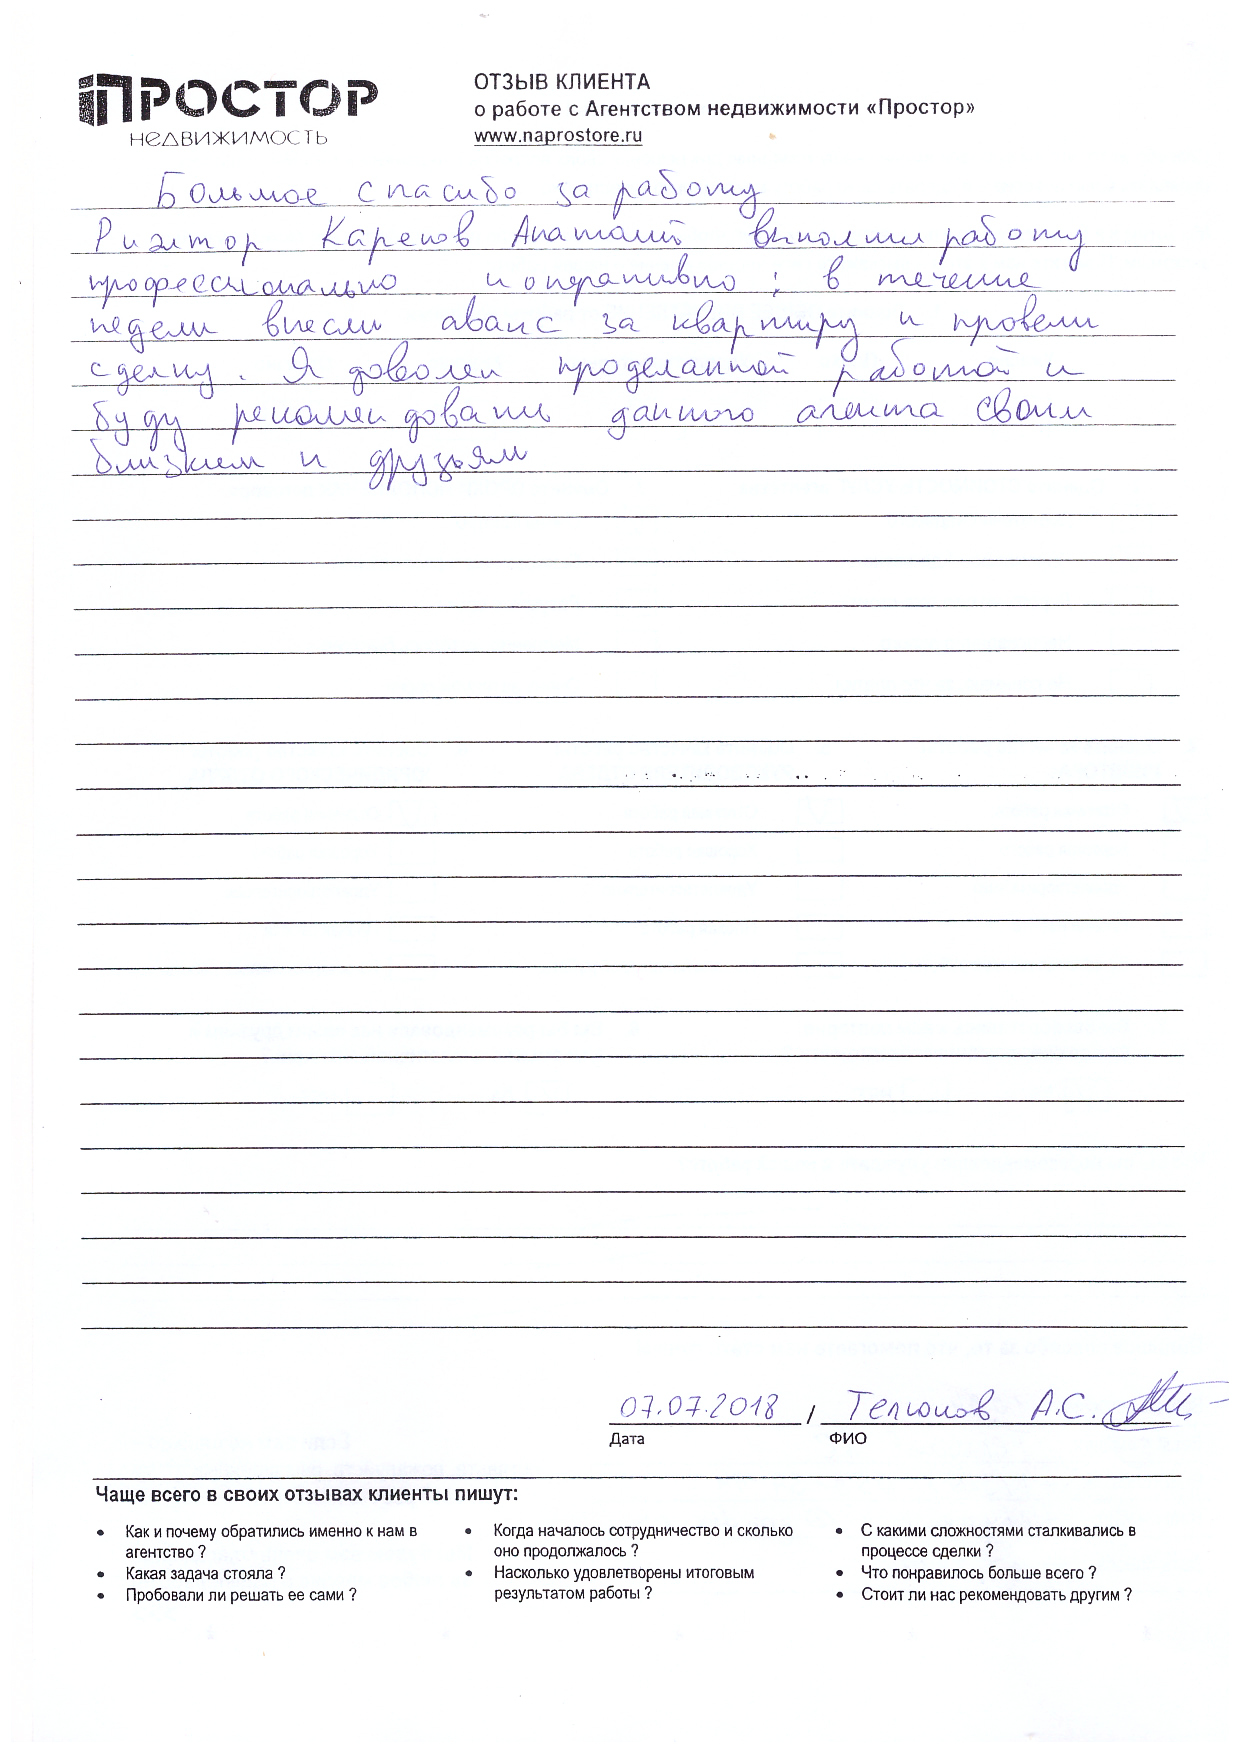 ПРОСТОР
НЕДВИЖИМОСТЬ
ОТЗЫВ КЛИЕНТА
о работе с Агентством недвижимости «Простор»
www.naprostore.ru
Большое спасибо за работу
Риэлтор Карепов Анатолий выполнил работу
профессионально и оперативно; в течение
недели внесли аванс за квартиру и провели
сделку. Я доволен проделанной работой и
буду рекомендовать данного агента своим
близким и друзьям
07.07.2018 / А.С.
Дата ФИО
Чаще всего в своих отзывах клиенты пишут:
• Как и почему обратились именно к нам в
агентство ?
• Какая задача стояла ?
• Пробовали ли решать ее сами ?
• Когда началось сотрудничество и сколько
оно продолжалось ?
• Насколько удовлетворены итоговым
результатом работы ?
• С какими сложностями сталкивались в
процессе сделки ?
• Что понравилось больше всего ?
• Стоит ли нас рекомендовать другим ?